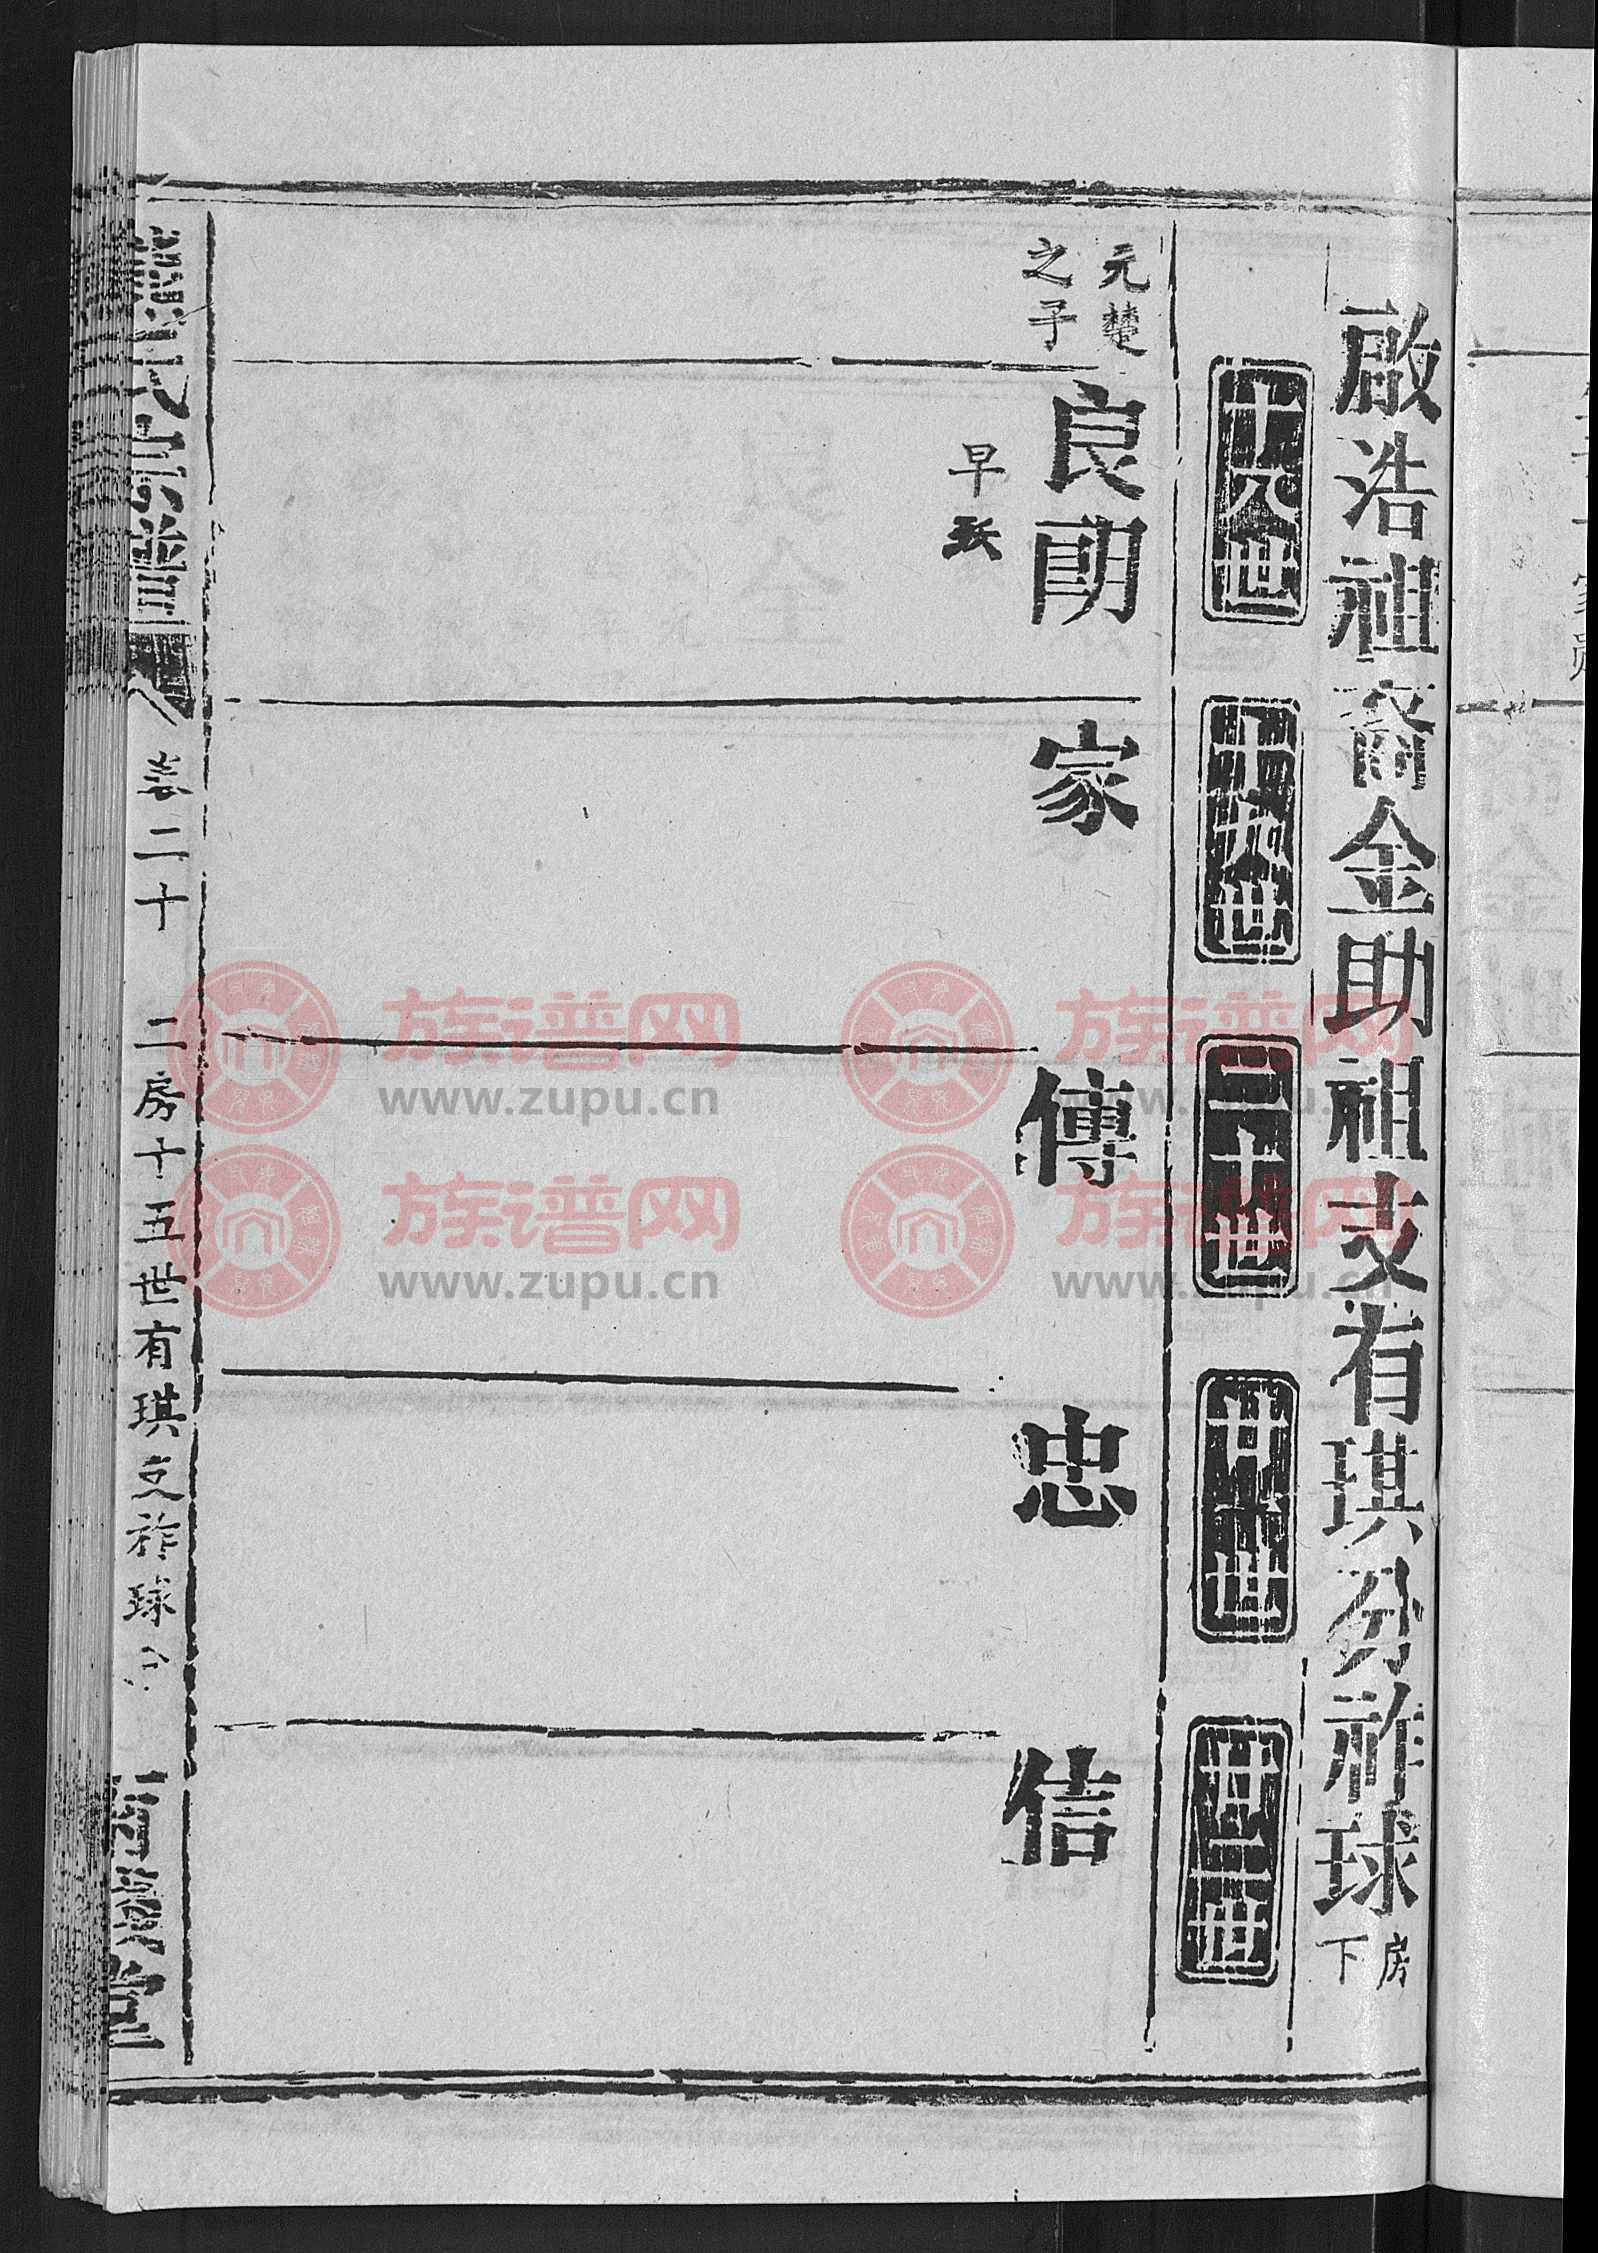 啟浩祖裔金助祖支有琪分祚球
房
下
十八世
十九世
二十世
廿一世
廿二世
元楚
之子
良朗
早歿
家
傳
忠
信
卷二十
二房十五世有琪支祚球
族谱网
www.zupu.cn
族谱网
www.zupu.cn
族谱网
www.zupu.cn
族谱网
www.zupu.cn